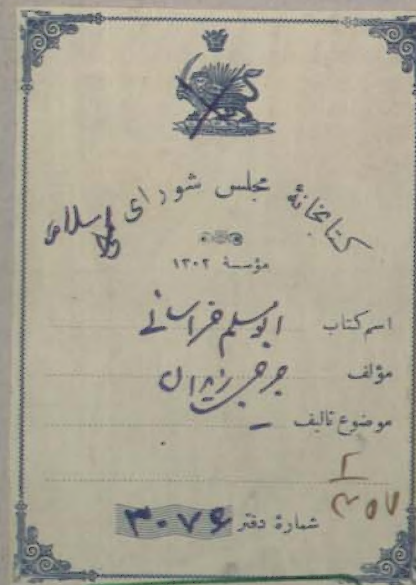 کتابخانهٔ مجلس شورای اسلامی
مؤسسهٔ ۱۳۰۲
اسم کتاب ابومسلم خراسانی
مؤلف جرجی زیدان
موضوع تالیف
شمارهٔ دفتر ۳۰۷۶